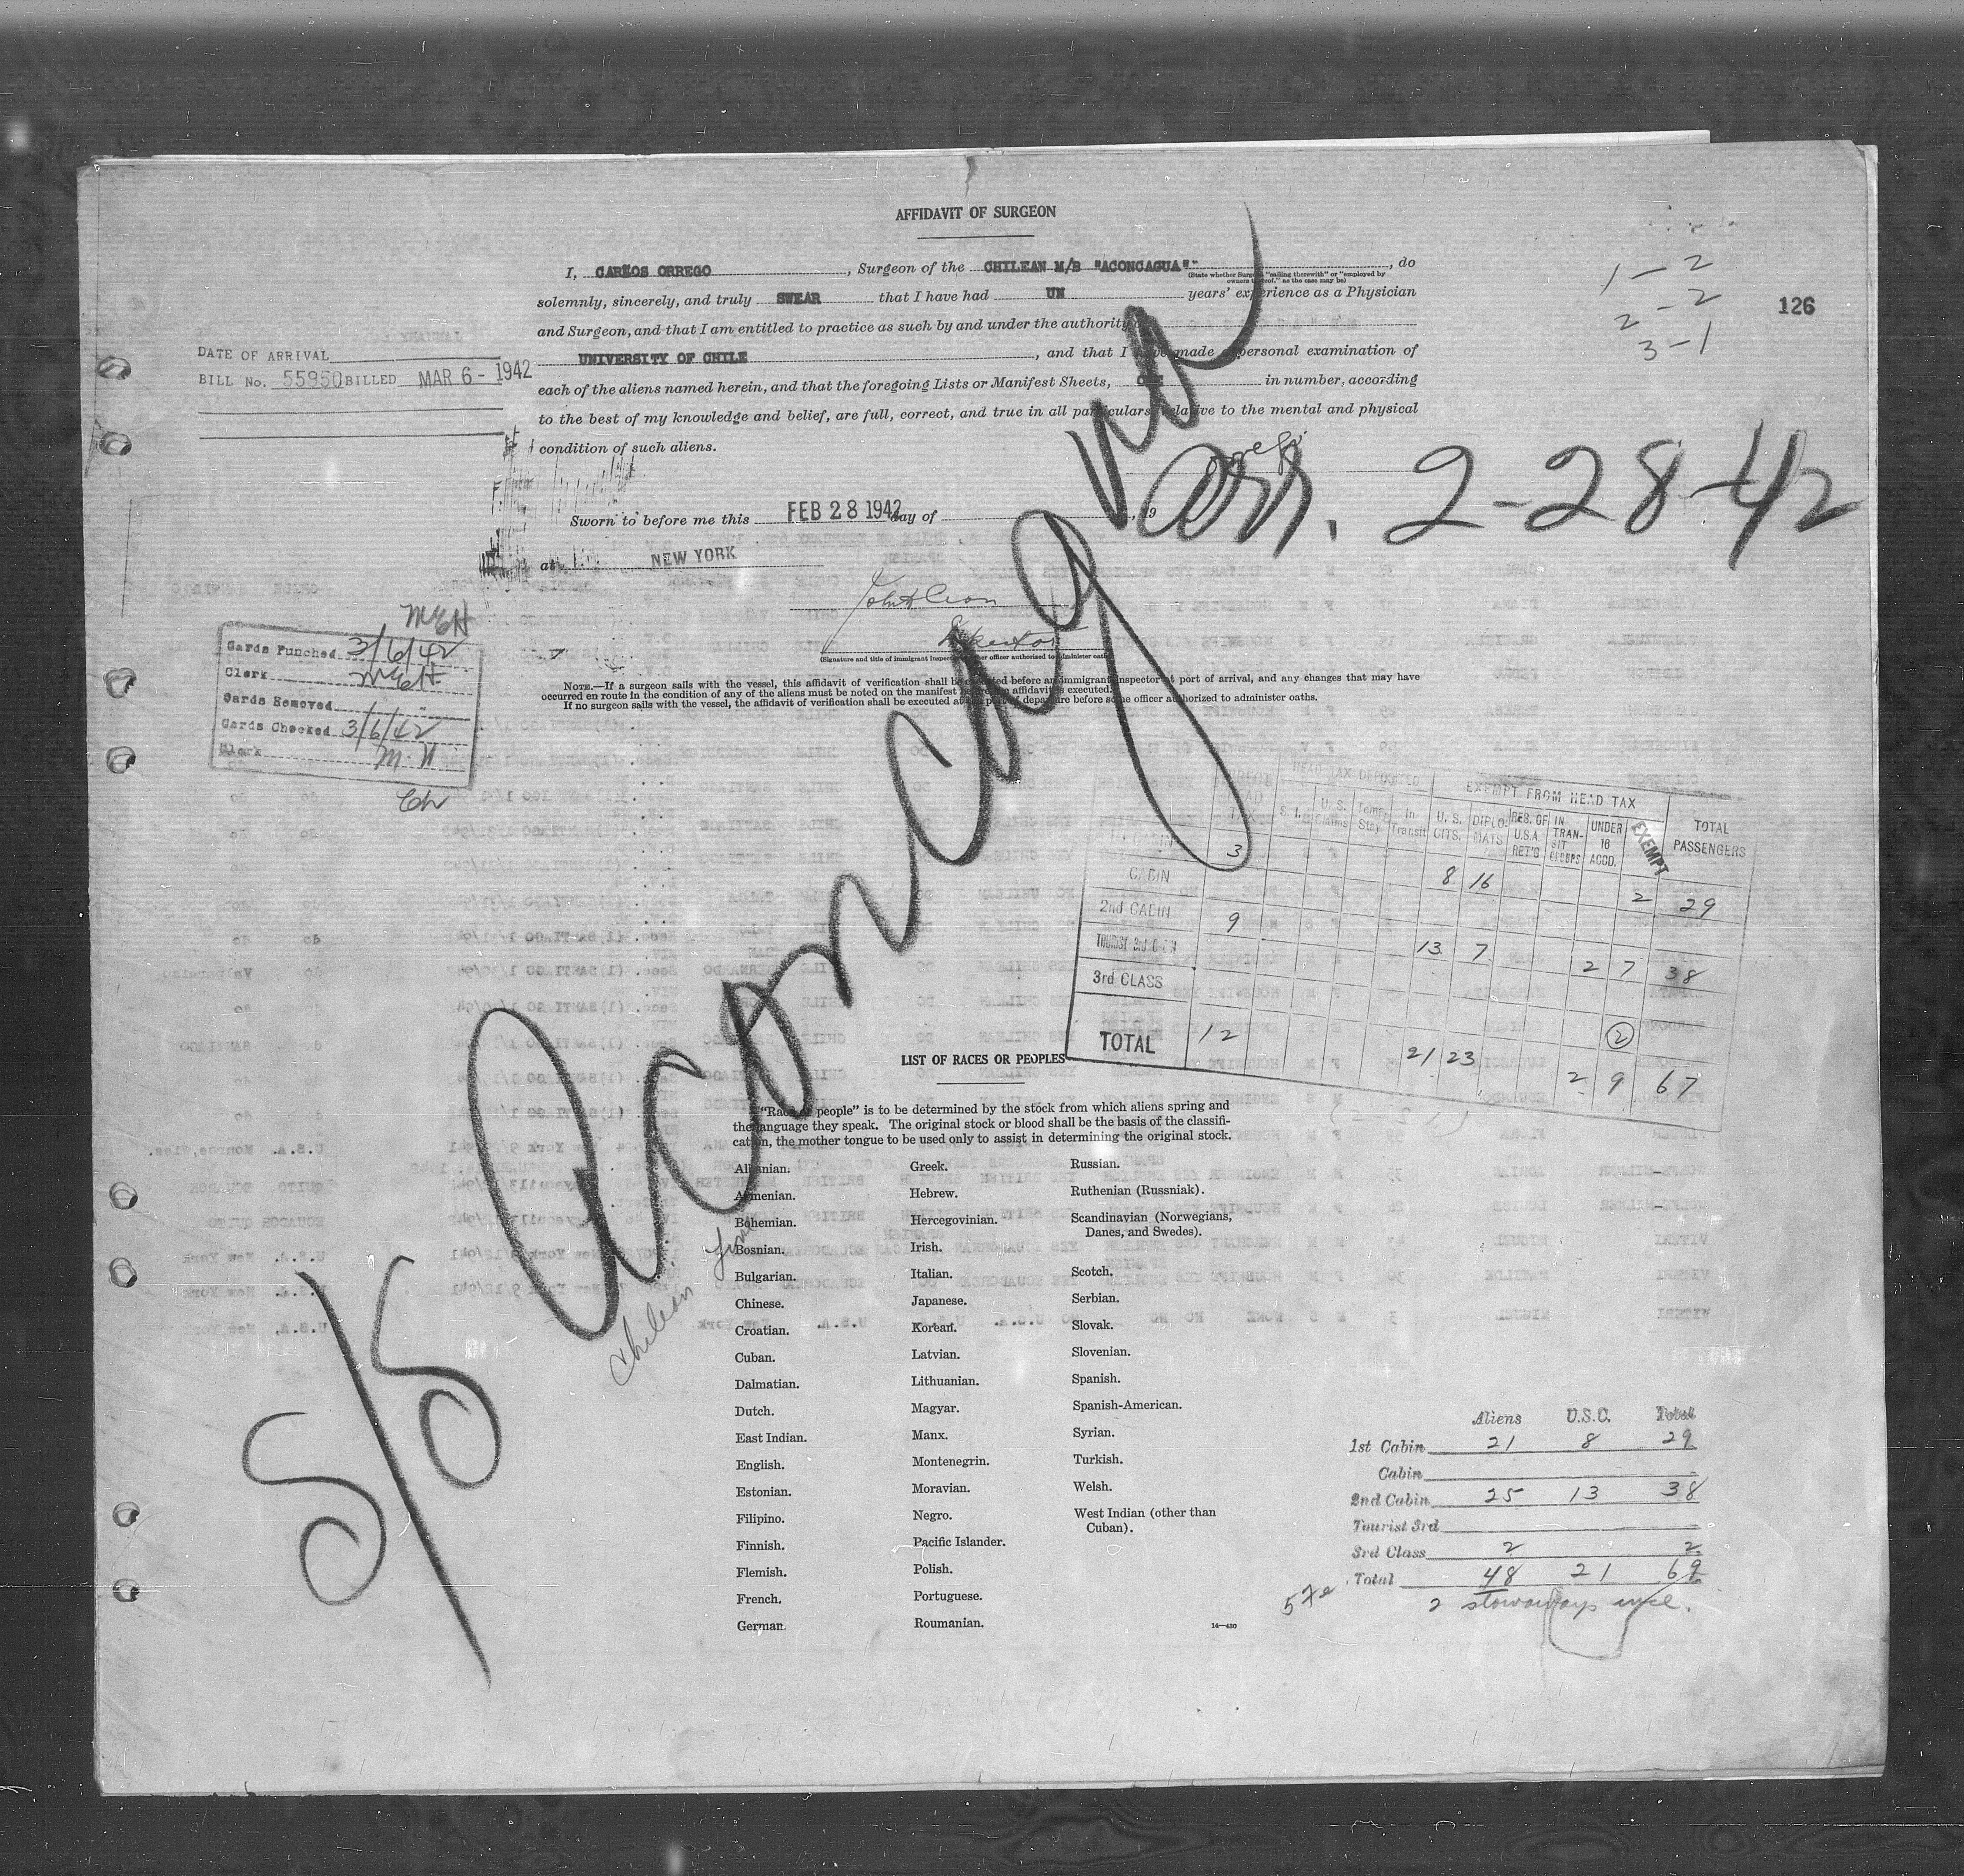 AFFIDAVIT OF SURGEON
I, CARLOS ORREGO, Surgeon of the CHILEAN M/B "ACONCAGUA", do
(State whether Surgeon "sailing therewith" or "employed by
owners thereof," as the case may be)
solemnly, sincerely, and truly SWEAR that I have had UN years' experience as a Physician
and Surgeon, and that I am entitled to practice as such by and under the authority
UNIVERSITY OF CHILE, and that I have made personal examination of
each of the aliens named herein, and that the foregoing Lists or Manifest Sheets, ONE in number, according
to the best of my knowledge and belief, are full, correct, and true in all particulars relative to the mental and physical
condition of such aliens.
1-2
2-2
3-1
126
DATE OF ARRIVAL
BILL No. 55950 BILLED MAR 6 - 1942
Arr. 2-28-42
Sworn to before me this FEB 28 1942 day of , 19
at NEW YORK
Inspector
(Signature and title of immigrant inspector or other officer authorized to administer oath)
NOTE.—If a surgeon sails with the vessel, this affidavit of verification shall be executed before an immigrant inspector at port of arrival, and any changes that may have
occurred en route in the condition of any of the aliens must be noted on the manifest before the affidavit is executed.
If no surgeon sails with the vessel, the affidavit of verification shall be executed at the port of departure before some officer authorized to administer oaths.
MEH
Cards Punched 3/6/42
Clerk MEH
Cards Removed
Cards Checked 3/6/42
Clerk M.H
S/S Aconcagua
Chilean Line
HEAD TAX DEPOSITED EXEMPT FROM HEAD TAX
HEAD TAX S.I. U.S. Claims Temp. Stay In Transit U.S. CITS. DIPLO-MATS RES. OF U.S.A. RET'G IN TRAN-SIT GROUPS UNDER 16 ACCO. EXEMPT TOTAL PASSENGERS
3 8 16 2 29
CABIN
2nd CABIN 9 13 7 2 7 38
TOURIST 3rd
3rd CLASS 2
TOTAL 12 21 23 2 9 67
LIST OF RACES OR PEOPLES
"Race or people" is to be determined by the stock from which aliens spring and
the language they speak. The original stock or blood shall be the basis of the classifi-
cation, the mother tongue to be used only to assist in determining the original stock.
Albanian.
Armenian.
Bohemian.
Bosnian.
Bulgarian.
Chinese.
Croatian.
Cuban.
Dalmatian.
Dutch.
East Indian.
English.
Estonian.
Filipino.
Finnish.
Flemish.
French.
German.
Greek.
Hebrew.
Hercegovinian.
Irish.
Italian.
Japanese.
Korean.
Latvian.
Lithuanian.
Magyar.
Manx.
Montenegrin.
Moravian.
Negro.
Pacific Islander.
Polish.
Portuguese.
Roumanian.
Russian.
Ruthenian (Russniak).
Scandinavian (Norwegians,
Danes, and Swedes).
Scotch.
Serbian.
Slovak.
Slovenian.
Spanish.
Spanish-American.
Syrian.
Turkish.
Welsh.
West Indian (other than
Cuban).
14—430
Aliens U.S.C. Total
1st Cabin 21 8 29
Cabin
2nd Cabin 25 13 38
Tourist 3rd
3rd Class 2 2
Total 48 21 69
2 stowaways incl.